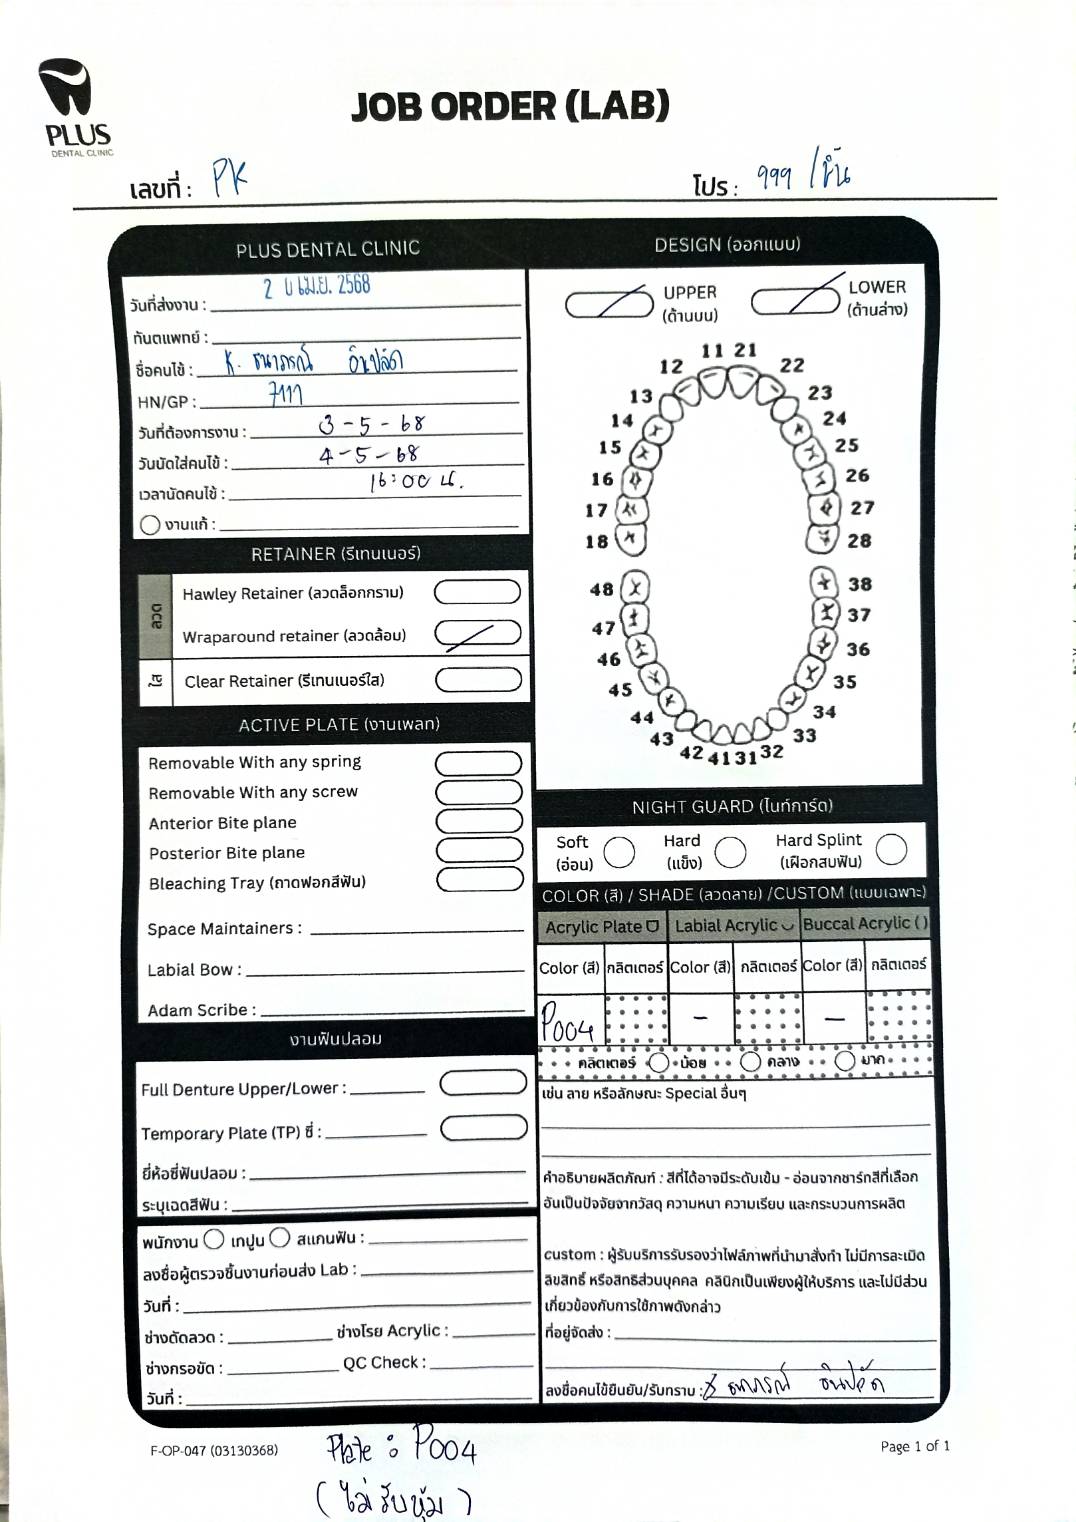 PLUS
DENTAL CLINIC
JOB ORDER (LAB)
เลขที่ : PK
โปร : 999 /ชิ้น
PLUS DENTAL CLINIC
วันที่ส่งงาน : 2 เม.ย. 2568
ทันตแพทย์ :
ชื่อคนไข้ : K. ธนาภรณ์ อินปลัด
HN/GP : 7117
วันที่ต้องการงาน : 3-5-68
วันนัดใส่คนไข้ : 4-5-68
เวลานัดคนไข้ : 16:00 น.
งานแก้ :
RETAINER (รีเทนเนอร์)
ลวด
Hawley Retainer (ลวดล็อกกราม)
Wraparound retainer (ลวดล้อม)
ใส
Clear Retainer (รีเทนเนอร์ใส)
ACTIVE PLATE (งานเพลท)
Removable With any spring
Removable With any screw
Anterior Bite plane
Posterior Bite plane
Bleaching Tray (ถาดฟอกสีฟัน)
Space Maintainers :
Labial Bow :
Adam Scribe :
งานฟันปลอม
Full Denture Upper/Lower :
Temporary Plate (TP) ซี่ :
ยี่ห้อซี่ฟันปลอม :
ระบุเฉดสีฟัน :
พนักงาน เทปูน สแกนฟัน :
ลงชื่อผู้ตรวจชิ้นงานก่อนส่ง Lab :
วันที่ :
ช่างดัดลวด : ช่างโรย Acrylic :
ช่างกรอขัด : QC Check :
วันที่ :
DESIGN (ออกแบบ)
UPPER
(ด้านบน)
LOWER
(ด้านล่าง)
11 21
12 22
13 23
14 24
15 25
16 26
17 27
18 28
48 38
47 37
46 36
45 35
44 34
43 33
42 41 31 32
NIGHT GUARD (ไนท์การ์ด)
Soft
(อ่อน)
Hard
(แข็ง)
Hard Splint
(เฝือกสบฟัน)
COLOR (สี) / SHADE (ลวดลาย) /CUSTOM (แบบเฉพาะ)
Acrylic Plate Labial Acrylic Buccal Acrylic ( )
Color (สี) กลิตเตอร์ Color (สี) กลิตเตอร์ Color (สี) กลิตเตอร์
P004 - -
กลิตเตอร์ น้อย กลาง มาก
เช่น ลาย หรือลักษณะ Special อื่นๆ
คำอธิบายผลิตภัณฑ์ : สีที่ได้อาจมีระดับเข้ม - อ่อนจากชาร์ทสีที่เลือก
อันเป็นปัจจัยจากวัสดุ ความหนา ความเรียบ และกระบวนการผลิต
custom : ผู้รับบริการรับรองว่าไฟล์ภาพที่นำมาสั่งทำ ไม่มีการละเมิด
ลิขสิทธิ์ หรือสิทธิส่วนบุคคล คลินิกเป็นเพียงผู้ให้บริการ และไม่มีส่วน
เกี่ยวข้องกับการใช้ภาพดังกล่าว
ที่อยู่จัดส่ง :
ลงชื่อคนไข้ยืนยัน/รับทราบ : ธนาภรณ์ อินปลัด
F-OP-047 (03130368)
Page 1 of 1
Plate : P004
(ไม่รับหุ้ม)